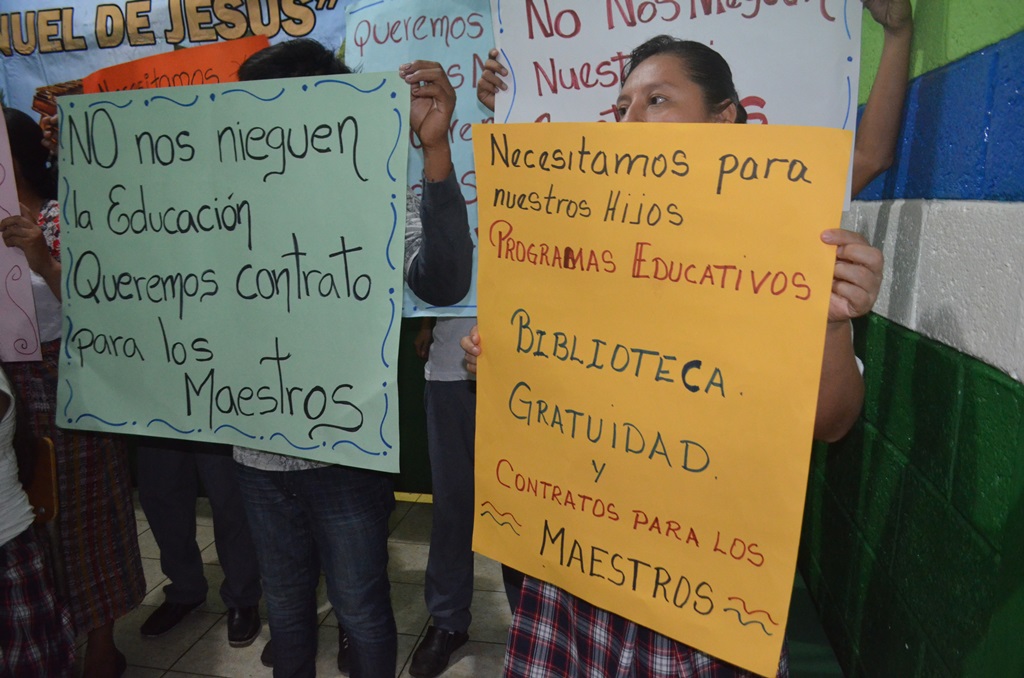 NUEL DE JESÚS"
Necesitamos
Queremos
No Nos Nieguen
NO nos nieguen
la Educación
Queremos contrato
para los
Maestros
Necesitamos para
nuestros Hijos
PROGRAMAS EDUCATIVOS
BIBLIOTECA.
GRATUIDAD.
Y
CONTRATOS PARA LOS
MAESTROS